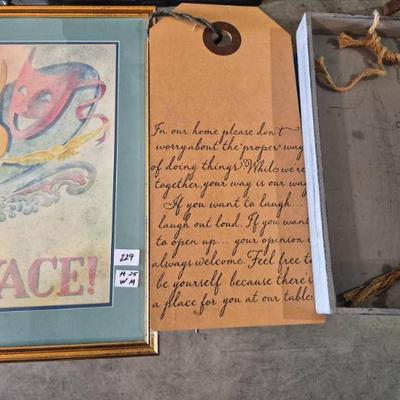 In our home please don't
worry about the "proper" way
of doing things. While we're
together, your way is our way.
If you want to laugh...
laugh out loud. If you want
to open up... your opinion is
always welcome. Feel free to
be yourself because there's
a place for you at our table.
ACE!
229
M 25
W M